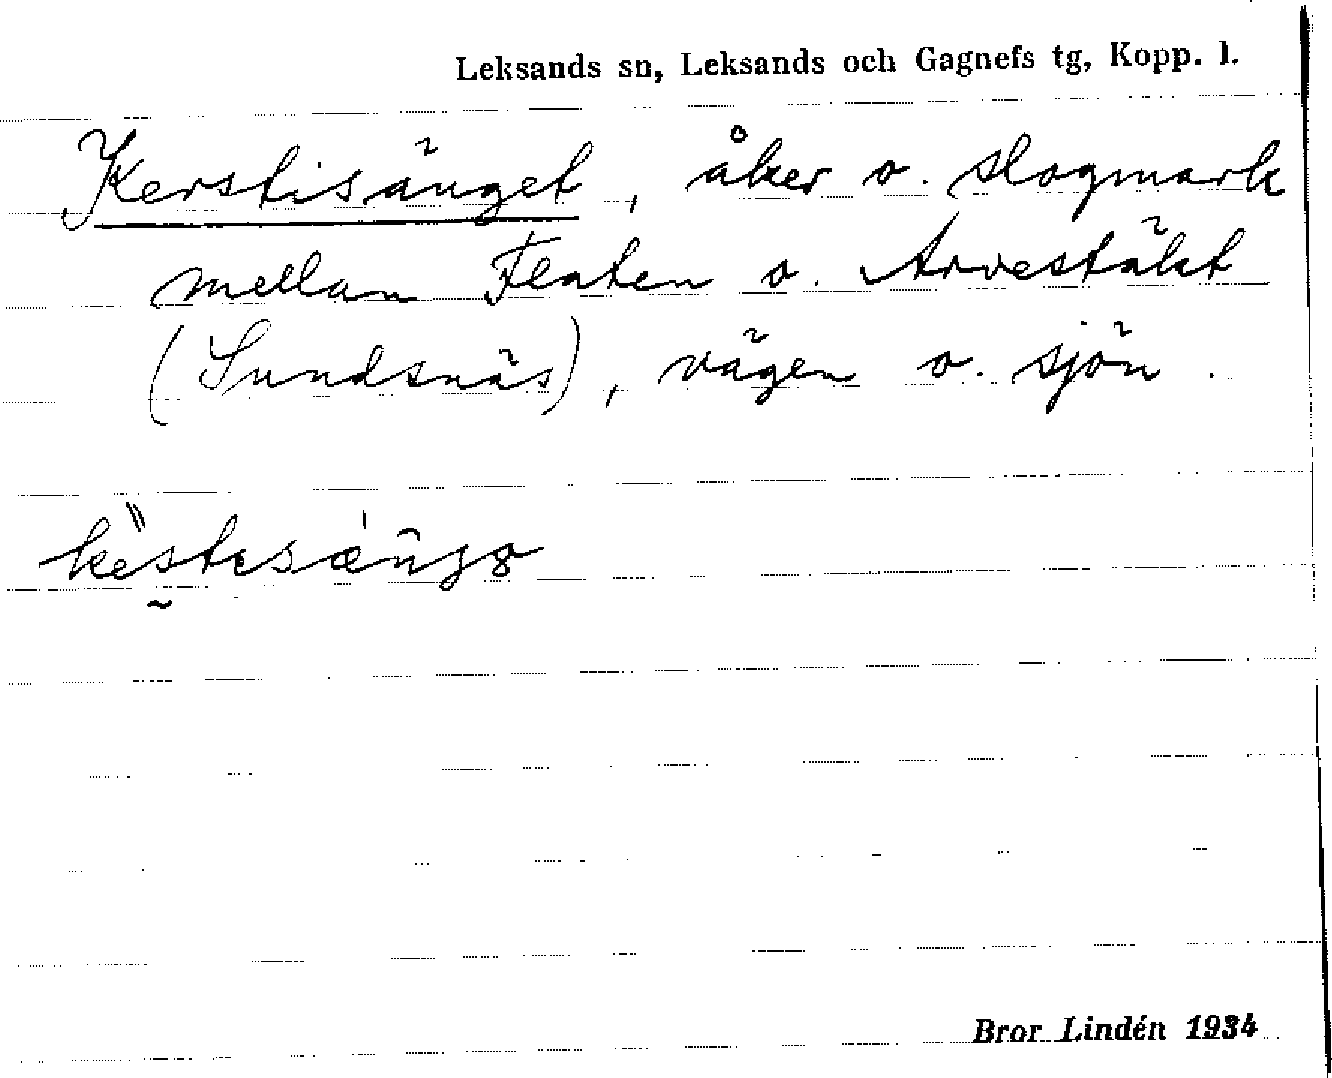 Leksands sn, Leksands och Gagnefs tg, Kopp. l.
Kerstisänget, åker o. skogmark
mellan Flaten o. Arvestäkt
(Sundsnäs), vägen o. sjön.
Bror Lindén 1934